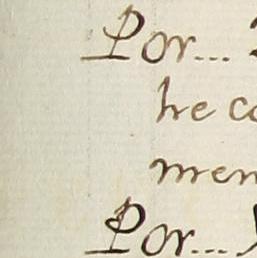 Por...
he co
men
Por...